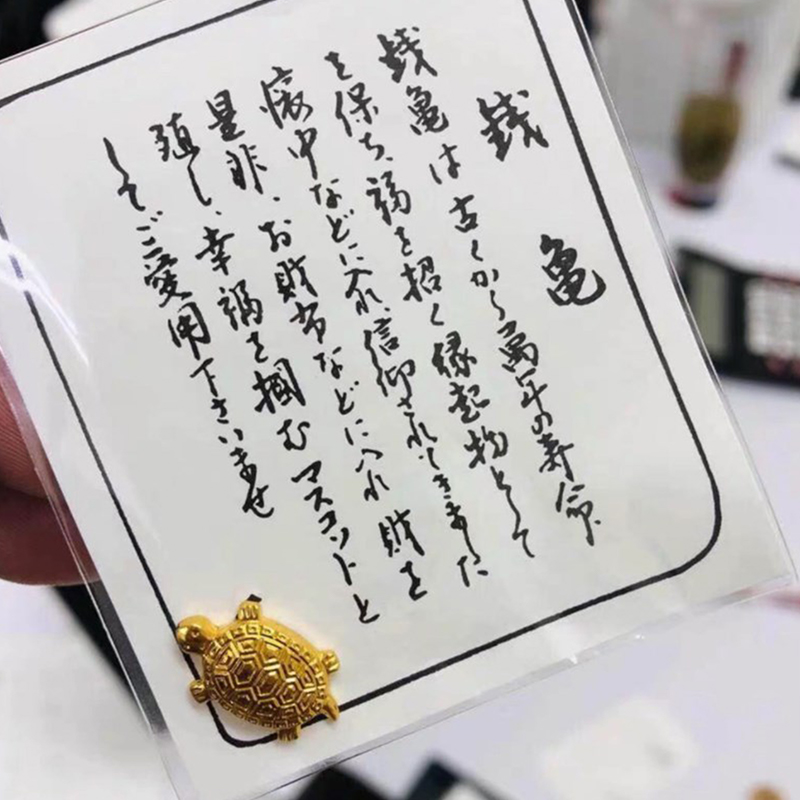 銭亀
銭亀は古くから萬年の寿命
を保ち、福を招く縁起物として
懐中などに入れ、信仰されてきました
是非、お財布などに入れ財を
殖し、幸福を掴むマスコットと
してご愛用下さいませ